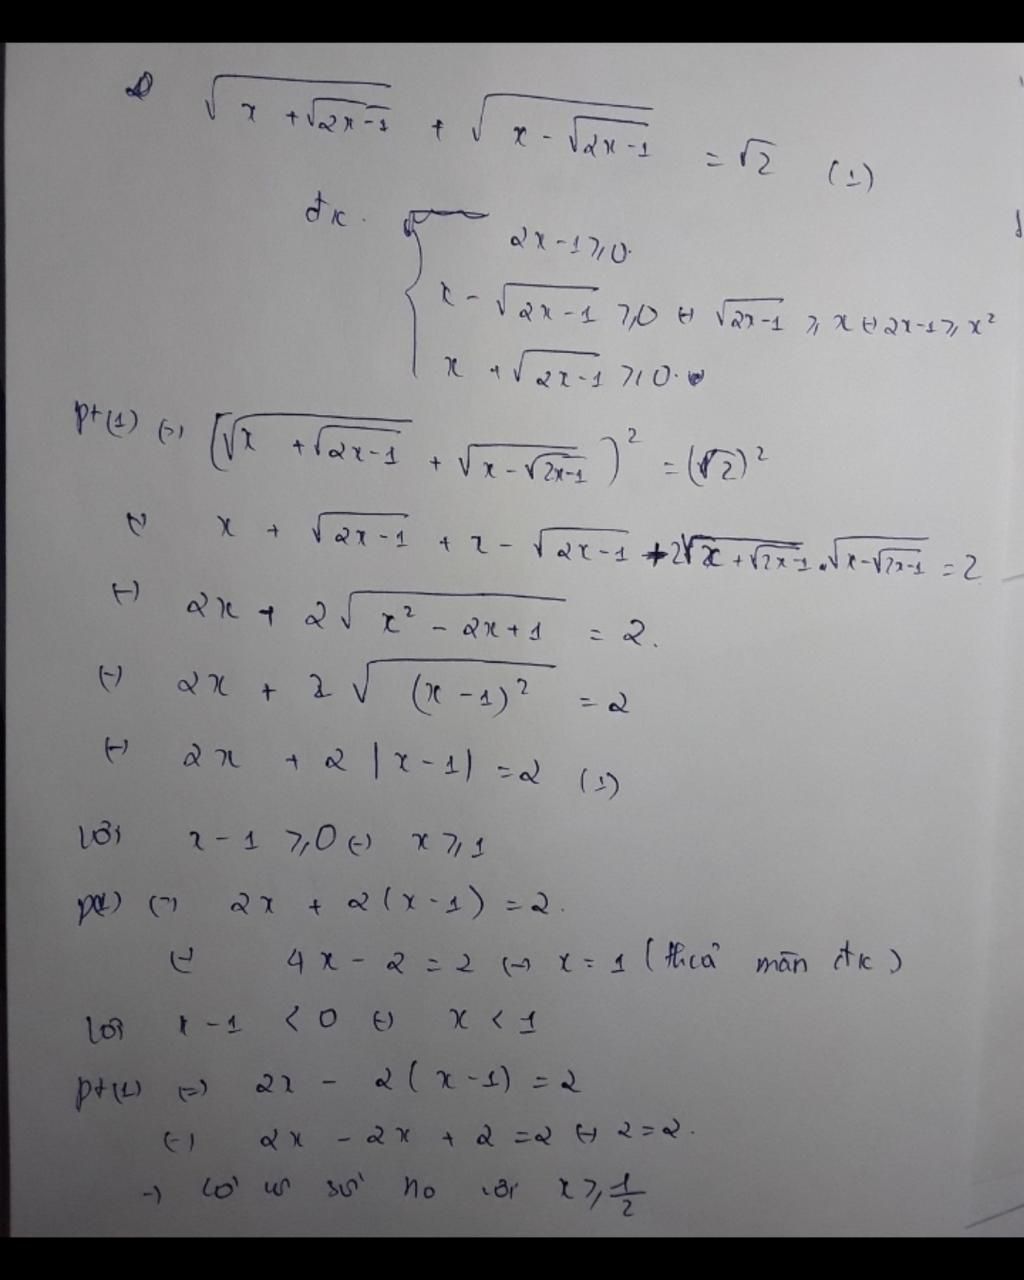 √(x + √(2x-1)) + √(x - √(2x-1)) = √2 (1)
đk.
2x-1 ≥ 0.
x - √(2x-1) ≥ 0 ⇔ √(2x-1) ≥ x ⇔ 2x-1 ≥ x²
x + √(2x-1) ≥ 0.
pt(1) ⇔ [√(x + √(2x-1)) + √(x - √(2x-1)))² = (√2)²
⇔ x + √(2x-1) + x - √(2x-1) + 2√(x + √(2x-1)) . √(x - √(2x-1)) = 2
⇔ 2x + 2√(x² - 2x + 1) = 2.
⇔ 2x + 2√((x - 1)²) = 2
⇔ 2x + 2|x - 1| = 2 (1)
với x - 1 ≥ 0 ⇔ x ≥ 1
⇔ 2x + 2(x - 1) = 2.
⇔ 4x - 2 = 2 ⇔ x = 1 (thỏa mãn đk)
với x - 1 < 0 ⇔ x < 1
pt(1) ⇔ 2x - 2(x - 1) = 2
⇔ 2x - 2x + 2 = 2 ⇔ 2 = 2.
→ có vô số no với x ≥ 1/2